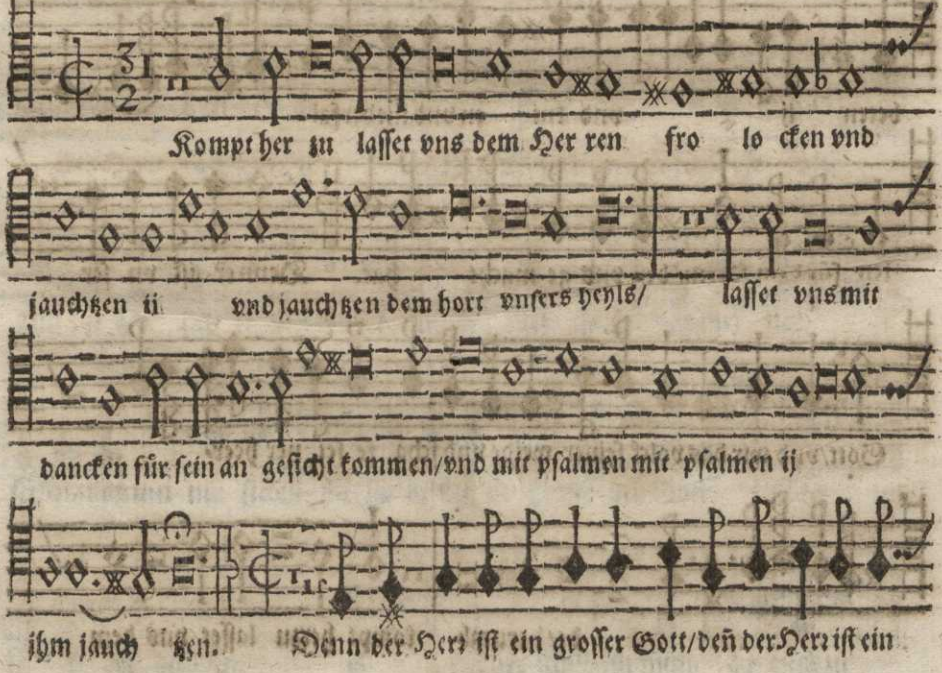 Kompt her zu lasset vns dem Herren frolocken vnd
jauchtzen ij vnd jauchtzen dem hort vnsers heyls/ lasset vns mit
dancken für sein angesicht kommen/vnd mit psalmen mit psalmen ij
ihm jauchtzen. Denn der Herr ist ein grosser Gott/deñ der Herr ist ein